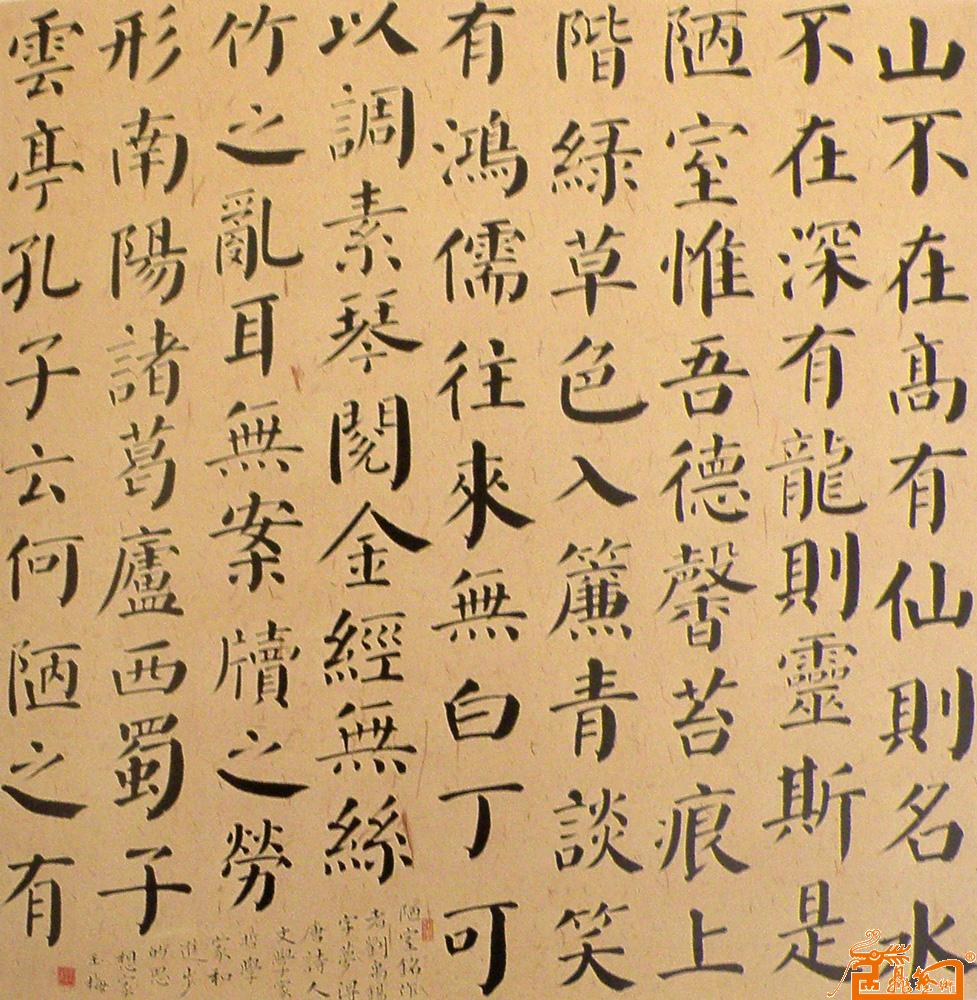 山不在高有仙則名水
不在深有龍則靈斯是
陋室惟吾德馨苔痕上
階綠草色入簾青談笑
有鴻儒往來無白丁可
以調素琴閱金經無絲
竹之亂耳無案牘之勞
形南陽諸葛廬西蜀子
雲亭孔子云何陋之有
陋室銘作
者劉禹錫
字夢得
唐詩人
文學家
哲學
家和
進步
的思
想家
王梅